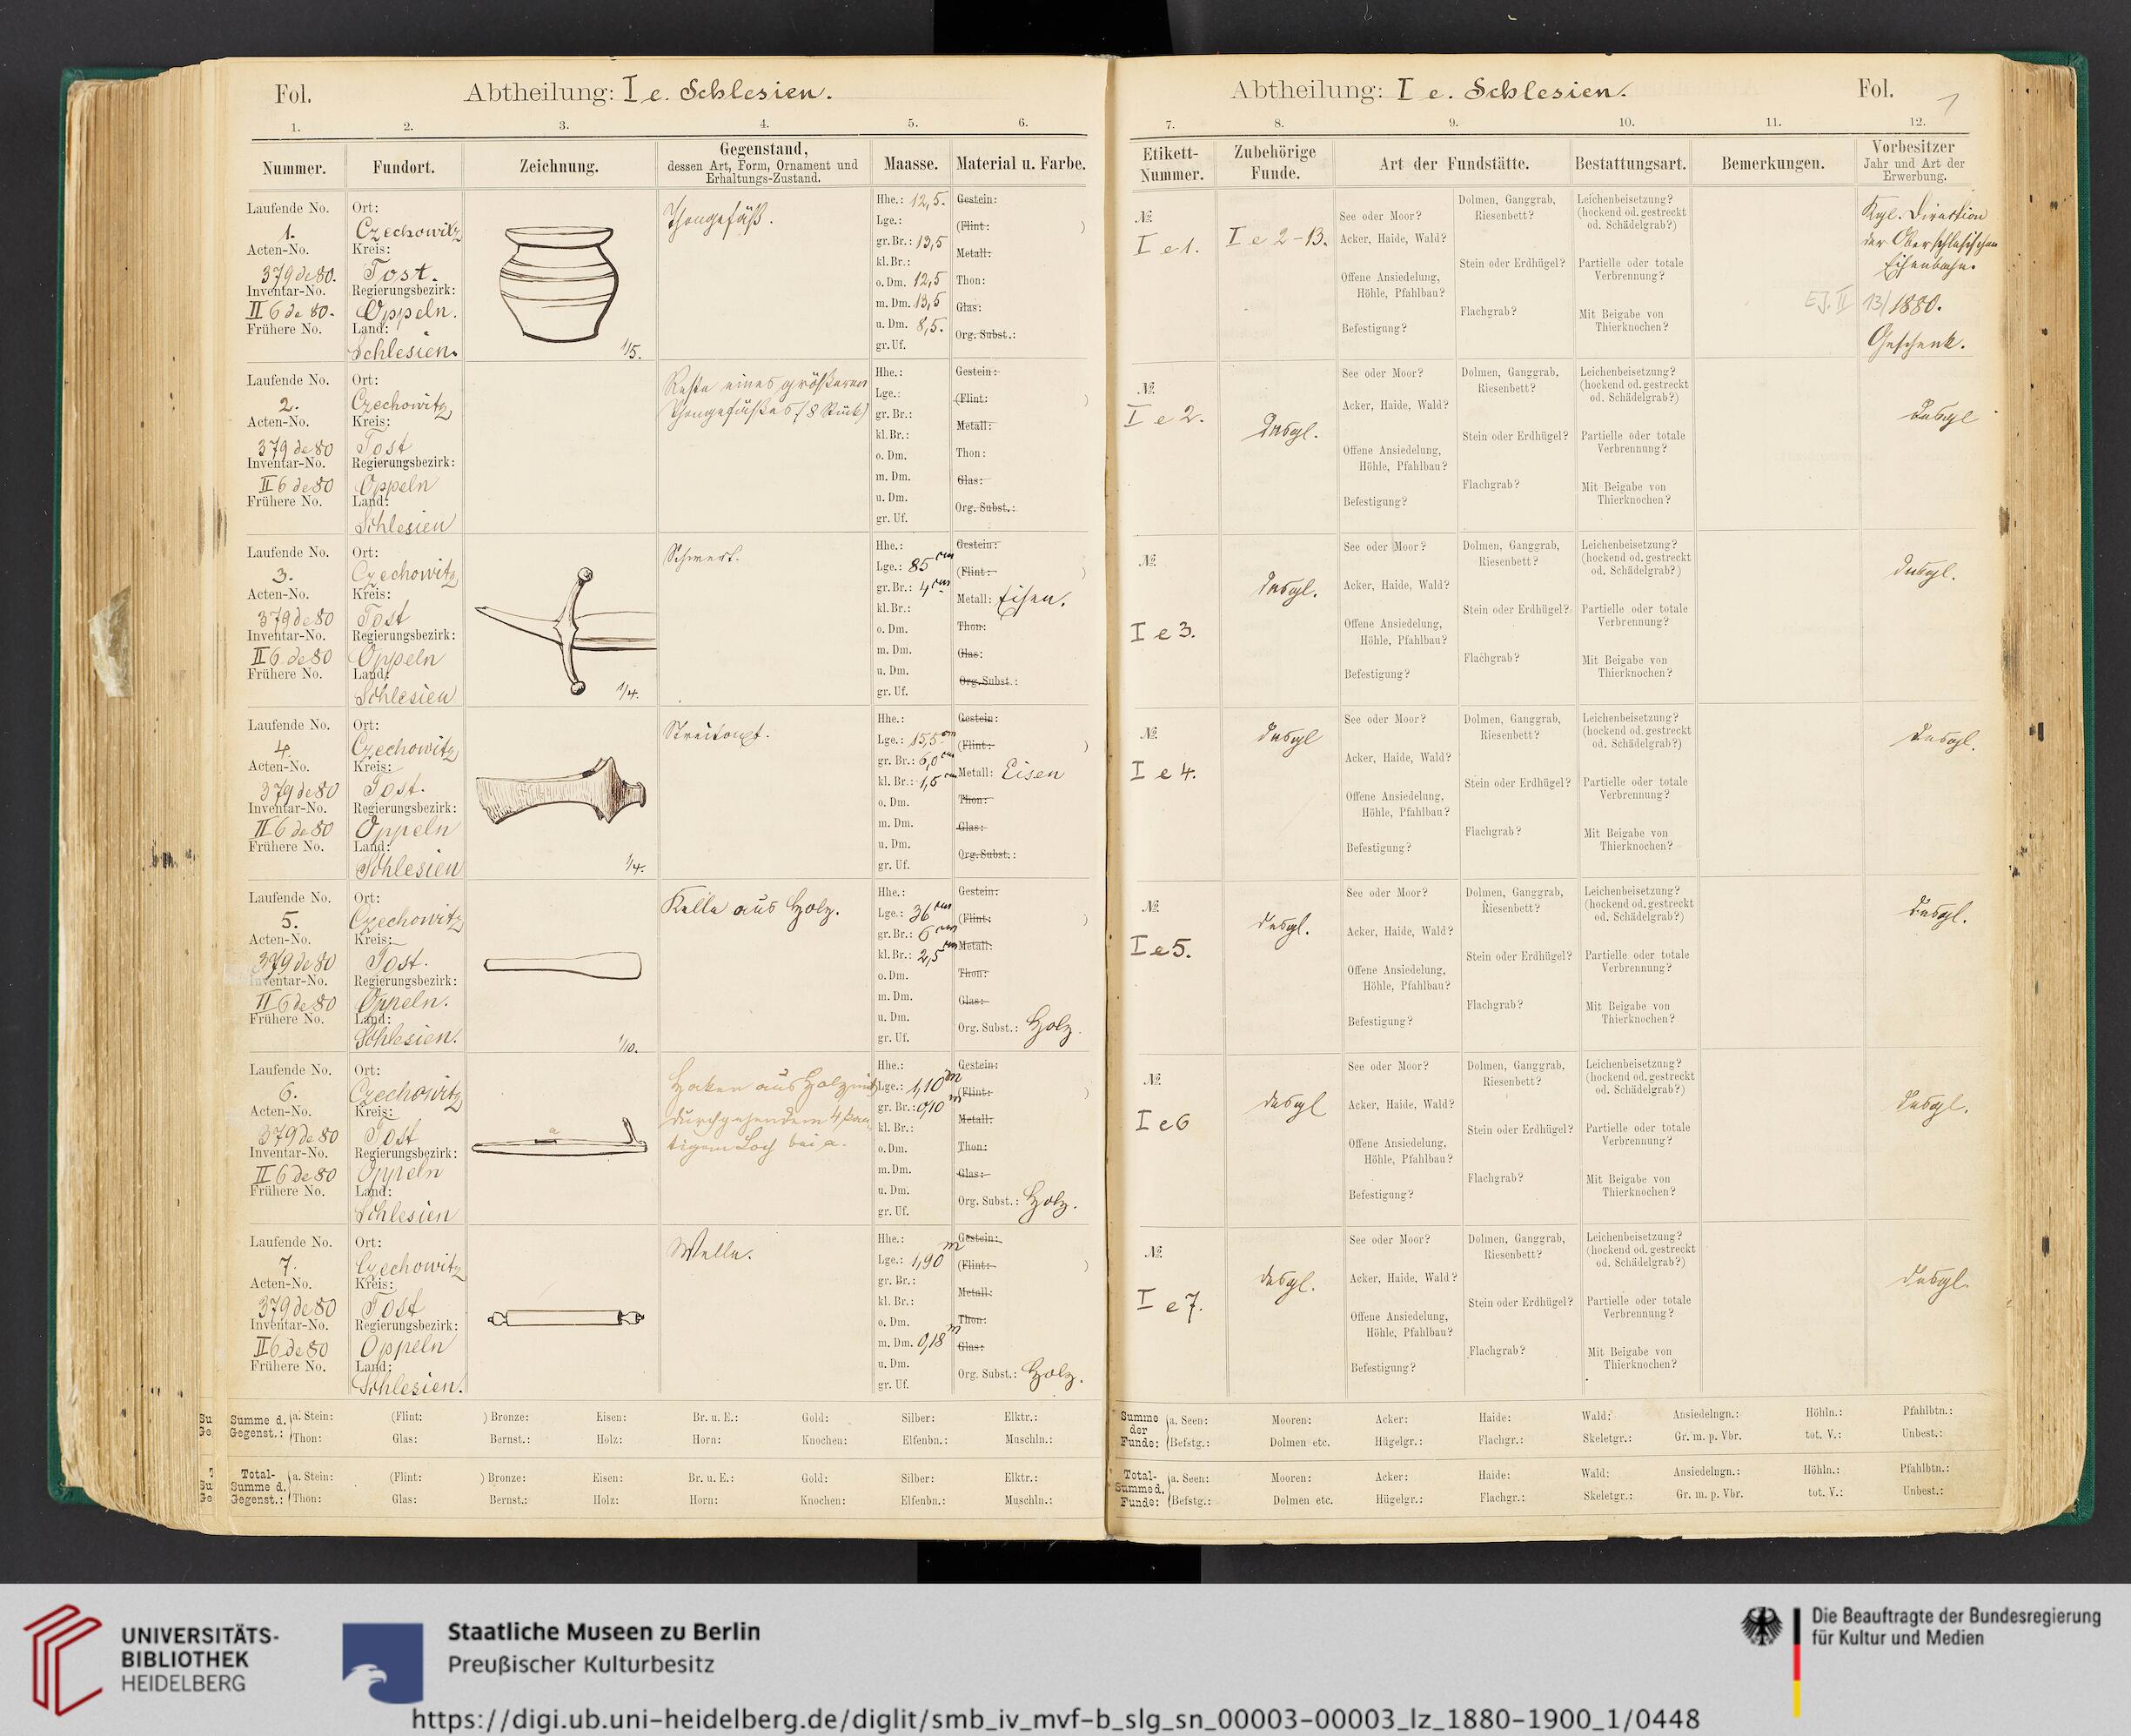 Fol. Abtheilung: I e. Schlesien.
1. 2. 3. 4. 5. 6.
Nummer. Fundort. Zeichnung. Gegenstand, dessen Art, Form, Ornament und Erhaltungs-Zustand. Maasse. Material u. Farbe.
Laufende No. 1.
Acten-No. 379 de 80.
Inventar-No. II 6 de 80.
Frühere No.
Ort: Czechowitz
Kreis: Tost.
Regierungsbezirk: Oppeln.
Land: Schlesien.
1/5.
Thongefäß.
Hhe.: 12,5.
Lge.:
gr. Br.: 13,5
kl. Br.:
o. Dm. 12,5
m. Dm. 13,5
u. Dm. 8,5.
gr. Uf.
Gestein:
(Flint: )
Metall:
Thon:
Glas:
Org. Subst.:
Laufende No. 2.
Acten-No. 379 de 80
Inventar-No. II 6 de 80
Frühere No.
Ort: Czechowitz
Kreis: Tost
Regierungsbezirk: Oppeln
Land: Schlesien
Reste eines größeren
Thongefäßes (8 Stück)
Hhe.:
Lge.:
gr. Br.:
kl. Br.:
o. Dm.
m. Dm.
u. Dm.
gr. Uf.
Gestein:
(Flint: )
Metall:
Thon:
Glas:
Org. Subst.:
Laufende No. 3.
Acten-No. 379 de 80
Inventar-No. II 6 de 80
Frühere No.
Ort: Czechowitz
Kreis: Tost
Regierungsbezirk: Oppeln
Land: Schlesien
1/4.
Schwert.
Hhe.:
Lge.: 85 cm
gr. Br.: 4 cm
kl. Br.:
o. Dm.
m. Dm.
u. Dm.
gr. Uf.
Gestein:
(Flint: )
Metall: Eisen.
Thon:
Glas:
Org. Subst.:
Laufende No. 4.
Acten-No. 379 de 80
Inventar-No. II 6 de 80
Frühere No.
Ort: Czechowitz
Kreis: Tost.
Regierungsbezirk: Oppeln
Land: Schlesien
1/4.
Streitaxt.
Hhe.:
Lge.: 15,5 cm
gr. Br.: 6,0 cm
kl. Br.: 1,5 cm
o. Dm.
m. Dm.
u. Dm.
gr. Uf.
Gestein:
(Flint: )
Metall: Eisen
Thon:
Glas:
Org. Subst.:
Laufende No. 5.
Acten-No. 379 de 80
Inventar-No. II 6 de 80
Frühere No.
Ort: Czechowitz
Kreis: Tost.
Regierungsbezirk: Oppeln.
Land: Schlesien.
1/10.
Kelle aus Holz.
Hhe.:
Lge.: 36 cm
gr. Br.: 6 cm
kl. Br.: 2,5 cm
o. Dm.
m. Dm.
u. Dm.
gr. Uf.
Gestein:
(Flint: )
Metall:
Thon:
Glas:
Org. Subst.: Holz.
Laufende No. 6.
Acten-No. 379 de 80
Inventar-No. II 6 de 80
Frühere No.
Ort: Czechowitz
Kreis: Tost
Regierungsbezirk: Oppeln
Land: Schlesien
a
Haken aus Holz mit
durchgehendem 4 kan-
tigem Loch bei a.
Hhe.:
Lge.: 1,10 m
gr. Br.: 0,10 m
kl. Br.:
o. Dm.
m. Dm.
u. Dm.
gr. Uf.
Gestein:
(Flint: )
Metall:
Thon:
Glas:
Org. Subst.: Holz.
Laufende No. 7.
Acten-No. 379 de 80
Inventar-No. II 6 de 80
Frühere No.
Ort: Czechowitz
Kreis: Tost
Regierungsbezirk: Oppeln
Land: Schlesien.
Welle.
Hhe.:
Lge.: 1,90 m
gr. Br.:
kl. Br.:
o. Dm.
m. Dm. 0,18 m
u. Dm.
gr. Uf.
Gestein:
(Flint: )
Metall:
Thon:
Glas:
Org. Subst.: Holz.
Summe d. Gegenst.: a. Stein: (Flint: ) Bronze: Eisen: Br. u. E.: Gold: Silber: Elktr.:
Thon: Glas: Bernst.: Holz: Horn: Knochen: Elfenbn.: Muschln.:
Total-Summe d. Gegenst.: a. Stein: (Flint: ) Bronze: Eisen: Br. u. E.: Gold: Silber: Elktr.:
Thon: Glas: Bernst.: Holz: Horn: Knochen: Elfenbn.: Muschln.:
Abtheilung: I e. Schlesien. Fol. 1
7. 8. 9. 10. 11. 12.
Etikett-Nummer. Zubehörige Funde. Art der Fundstätte. Bestattungsart. Bemerkungen. Vorbesitzer Jahr und Art der Erwerbung.
№ I e 1.
I e 2-13.
See oder Moor?
Acker, Haide, Wald?
Offene Ansiedelung, Höhle, Pfahlbau?
Befestigung?
Dolmen, Ganggrab, Riesenbett?
Stein oder Erdhügel?
Flachgrab?
Leichenbeisetzung? (hockend od. gestreckt od. Schädelgrab?)
Partielle oder totale Verbrennung?
Mit Beigabe von Thierknochen?
Kgl. Direktion
der Oberschlesischen
Eisenbahn.
E.J. II 13/1880.
Geschenk.
№ I e 2.
Desgl.
See oder Moor?
Acker, Haide, Wald?
Offene Ansiedelung, Höhle, Pfahlbau?
Befestigung?
Dolmen, Ganggrab, Riesenbett?
Stein oder Erdhügel?
Flachgrab?
Leichenbeisetzung? (hockend od. gestreckt od. Schädelgrab?)
Partielle oder totale Verbrennung?
Mit Beigabe von Thierknochen?
Desgl
№ I e 3.
Desgl.
See oder Moor?
Acker, Haide, Wald?
Offene Ansiedelung, Höhle, Pfahlbau?
Befestigung?
Dolmen, Ganggrab, Riesenbett?
Stein oder Erdhügel?
Flachgrab?
Leichenbeisetzung? (hockend od. gestreckt od. Schädelgrab?)
Partielle oder totale Verbrennung?
Mit Beigabe von Thierknochen?
Desgl.
№ I e 4.
Desgl
See oder Moor?
Acker, Haide, Wald?
Offene Ansiedelung, Höhle, Pfahlbau?
Befestigung?
Dolmen, Ganggrab, Riesenbett?
Stein oder Erdhügel?
Flachgrab?
Leichenbeisetzung? (hockend od. gestreckt od. Schädelgrab?)
Partielle oder totale Verbrennung?
Mit Beigabe von Thierknochen?
Desgl.
№ I e 5.
Desgl.
See oder Moor?
Acker, Haide, Wald?
Offene Ansiedelung, Höhle, Pfahlbau?
Befestigung?
Dolmen, Ganggrab, Riesenbett?
Stein oder Erdhügel?
Flachgrab?
Leichenbeisetzung? (hockend od. gestreckt od. Schädelgrab?)
Partielle oder totale Verbrennung?
Mit Beigabe von Thierknochen?
Desgl.
№ I e 6
Desgl
See oder Moor?
Acker, Haide, Wald?
Offene Ansiedelung, Höhle, Pfahlbau?
Befestigung?
Dolmen, Ganggrab, Riesenbett?
Stein oder Erdhügel?
Flachgrab?
Leichenbeisetzung? (hockend od. gestreckt od. Schädelgrab?)
Partielle oder totale Verbrennung?
Mit Beigabe von Thierknochen?
Desgl.
№ I e 7.
Desgl.
See oder Moor?
Acker, Haide, Wald?
Offene Ansiedelung, Höhle, Pfahlbau?
Befestigung?
Dolmen, Ganggrab, Riesenbett?
Stein oder Erdhügel?
Flachgrab?
Leichenbeisetzung? (hockend od. gestreckt od. Schädelgrab?)
Partielle oder totale Verbrennung?
Mit Beigabe von Thierknochen?
Desgl.
Summe der Funde: a. Seen: Mooren: Acker: Haide: Wald: Ansiedelngn.: Höhln.: Pfahlbtn.:
Befstg.: Dolmen etc. Hügelgr.: Flachgr.: Skeletgr.: Gr. m. p. Vbr. tot. V.: Unbest.:
Total-Summe d. Funde: a. Seen: Mooren: Acker: Haide: Wald: Ansiedelngn.: Höhln.: Pfahlbtn.:
Befstg.: Dolmen etc. Hügelgr.: Flachgr.: Skeletgr.: Gr. m. p. Vbr. tot. V.: Unbest.:
UNIVERSITÄTS-
BIBLIOTHEK
HEIDELBERG
Staatliche Museen zu Berlin
Preußischer Kulturbesitz
Die Beauftragte der Bundesregierung
für Kultur und Medien
https://digi.ub.uni-heidelberg.de/diglit/smb_iv_mvf-b_slg_sn_00003-00003_lz_1880-1900_1/0448